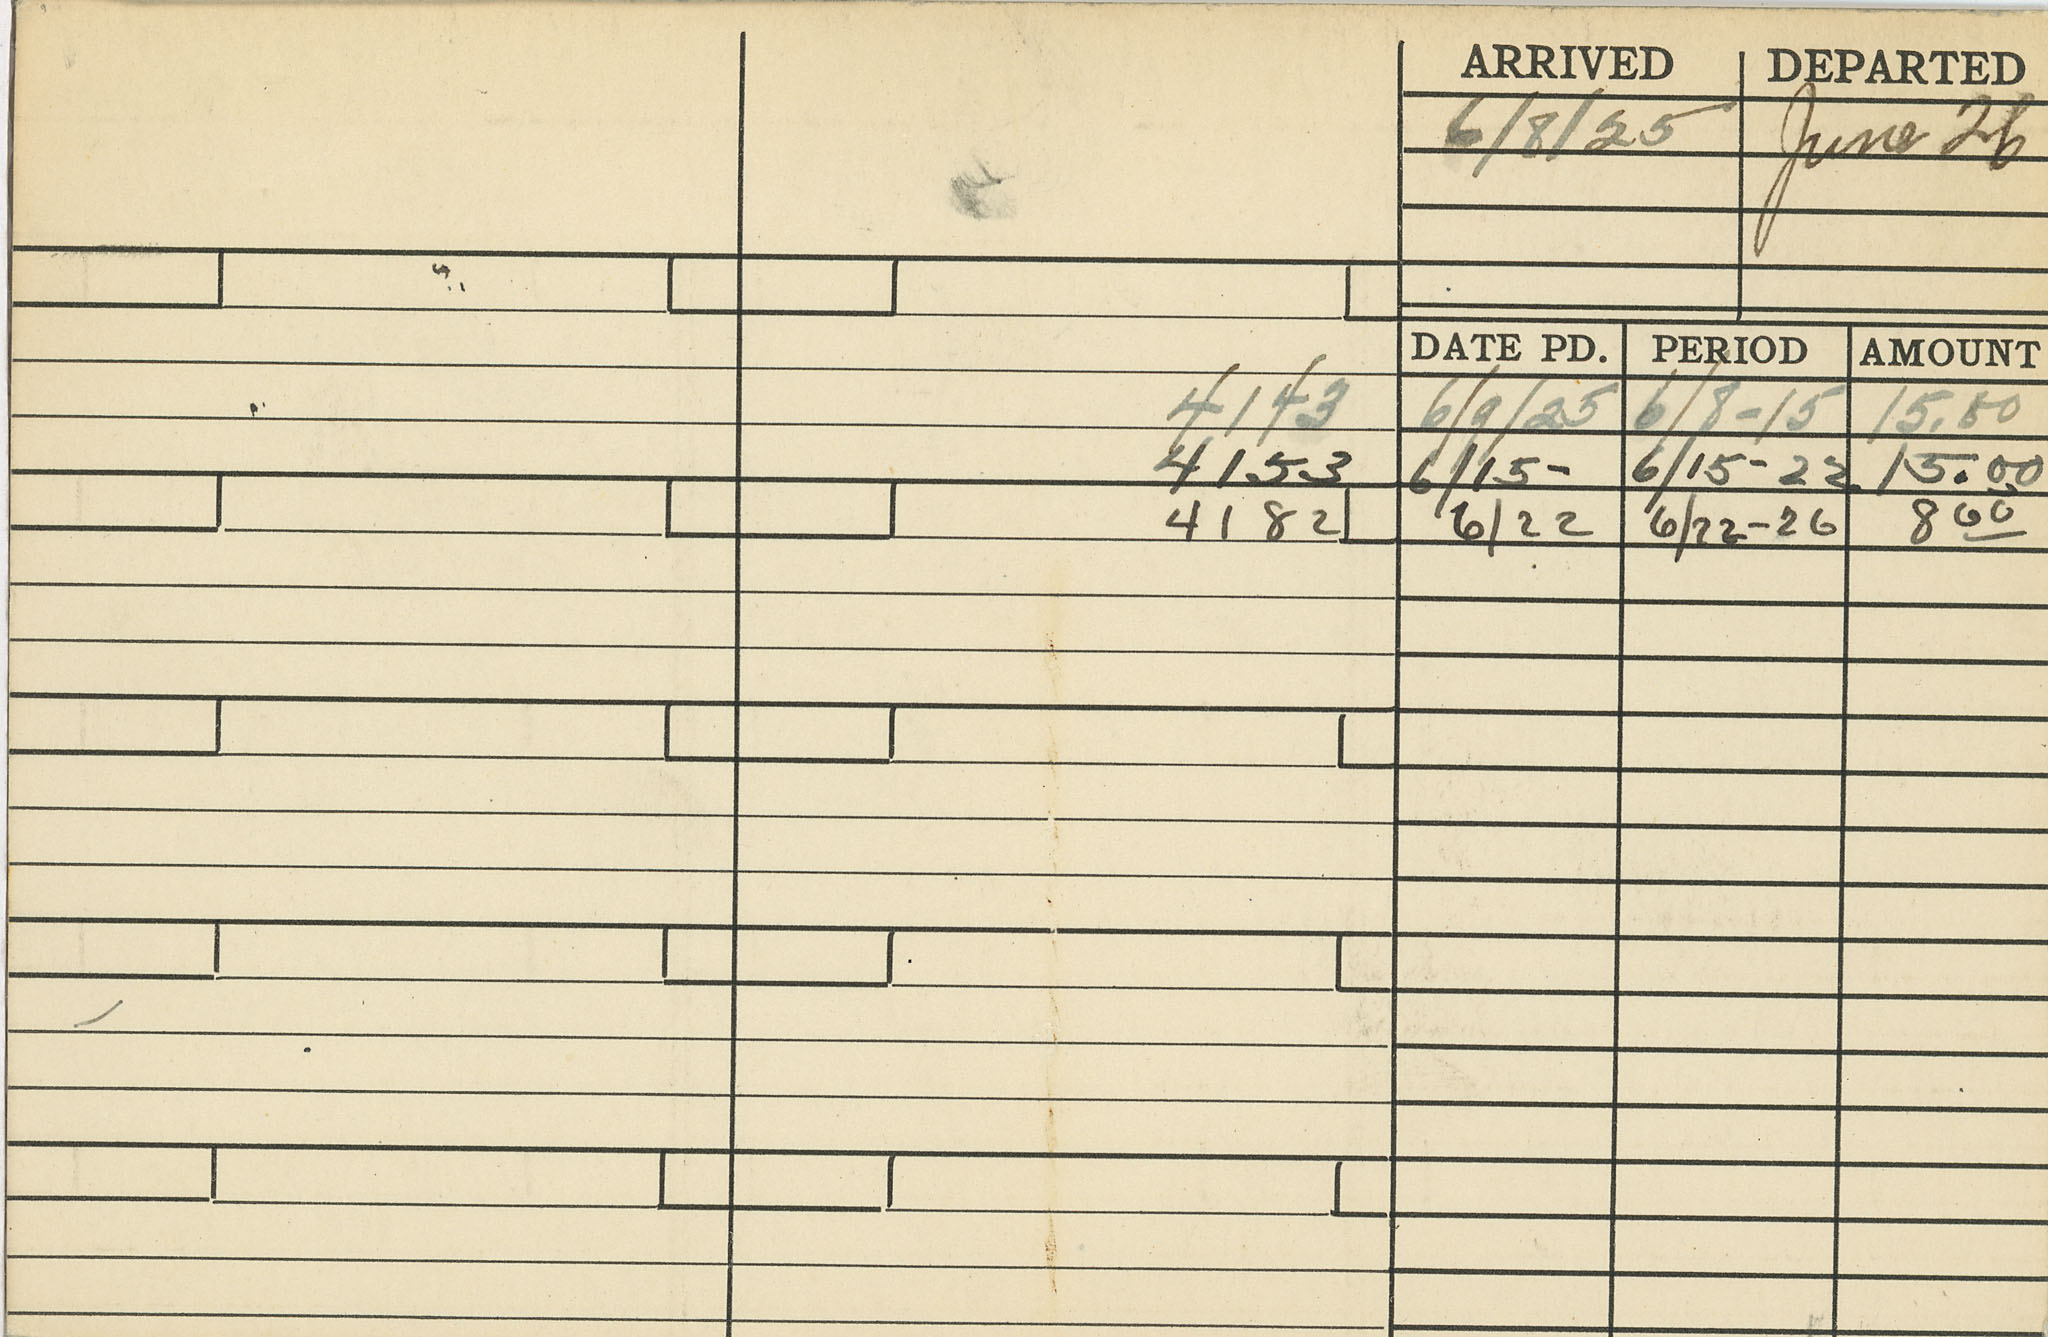 ARRIVED DEPARTED
6/8/25 June 26
DATE PD. PERIOD AMOUNT
4143 6/9/25 6/8-15 15.00
4153 6/15- 6/15-22 15.00
4182 6/22 6/22-26 8 00